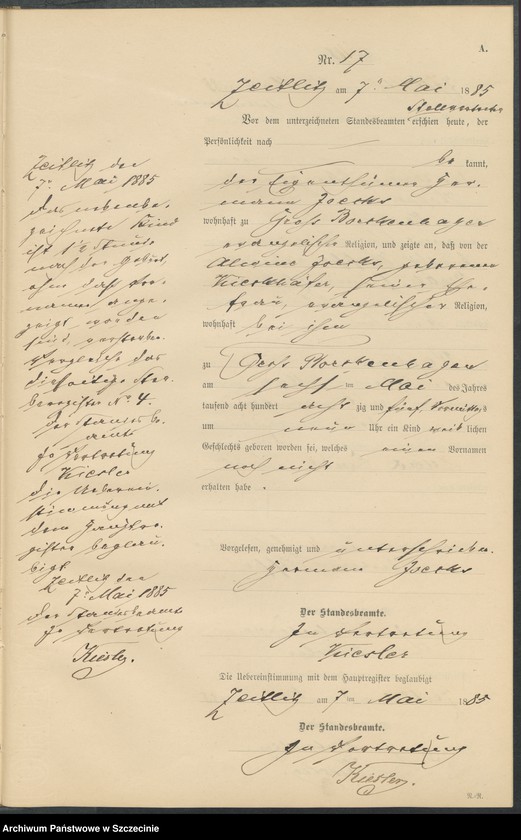 A.
Nr. 17
Zeitlitz am 7ten Mai 1885
Vor dem unterzeichneten Standesbeamten erschien heute, der
Persönlichkeit nach
be kannt,
der Eigenthümer Her-
mann
wohnhaft zu Groß Borckenhagen
evangelischer Religion, und zeigte an, daß von der
Alwine geborenen
seiner Ehe-
frau, evangelischer Religion,
wohnhaft bei ihm
zu Groß Borckenhagen
am sechsten Mai des Jahres
tausend acht hundert acht zig und fünf Vormittags
um neun Uhr ein Kind weib lichen
Geschlechts geboren worden sei, welches einen Vornamen
noch nicht
erhalten habe.
Vorgelesen, genehmigt und unterschrieben.
Hermann
Der Standesbeamte.
In Vertretung
Kiesler
Die Uebereinstimmung mit dem Hauptregister beglaubigt
Zeitlitz am 7ten Mai 1885
Der Standesbeamte.
In Vertretung
Kiesler.
R.-R.
Zeitlitz den
7. Mai 1885
Das nebenbe-
zeichnete Kind
ist
nach der Geburt,
ohne daß Vor-
namen ange-
zeigt worden
sind, verstorben.
Vergleiche das
diesseitige Ster-
beregister No 4.
Der Standesbe-
amte
In Vertretung
Kiesler
Die Ueberein-
stimmung mit
dem Hauptre-
gister beglau-
bigt
Zeitlitz den
7. Mai 1885
Der Standesbeamte
In Vertretung
Kiesler.
Archiwum Państwowe w Szczecinie